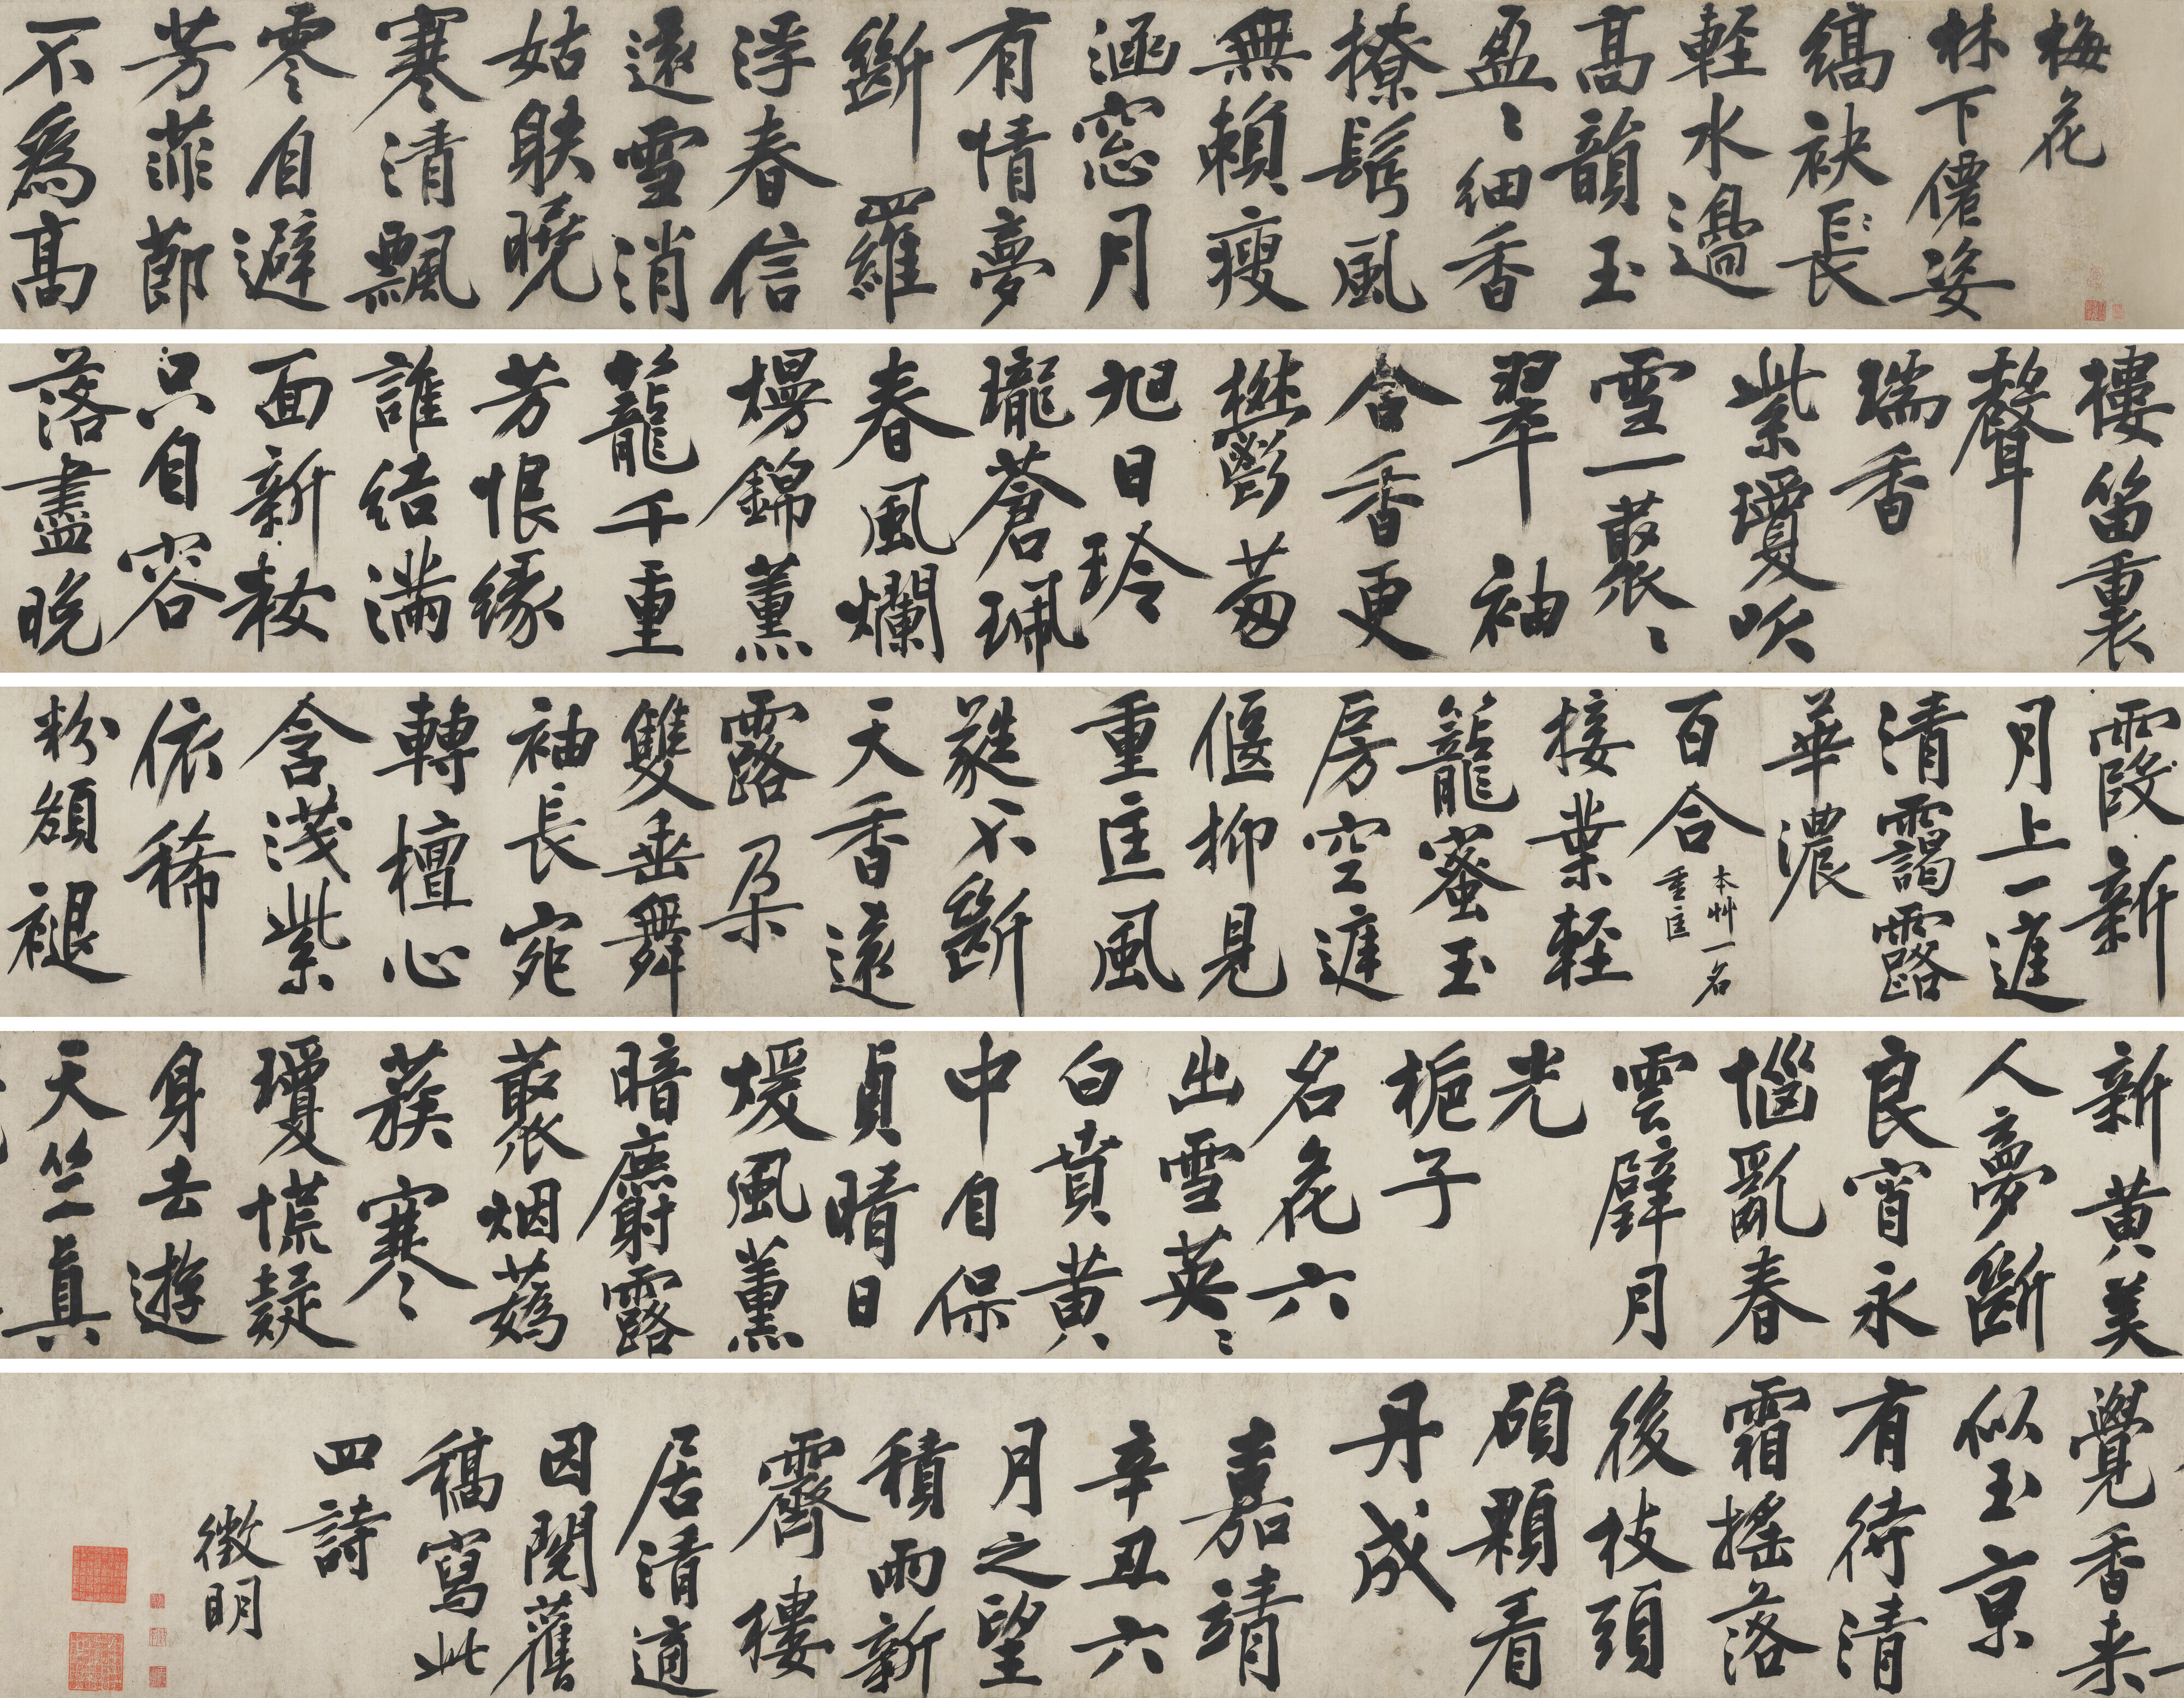 梅花
林下僊姿
縞袂長
輕水邊
高韻玉
盈〻細香
撩鬢風
無賴瘦
涵窓月
有情夢
斷羅
浮春信
遠雪消
姑射曉
寒清飄
零自避
芳菲節
不為高
樓笛裏
聲
瑞香
紫瓊吹
雪一叢〻
翠袖
含香更
鬱葱
旭日玲
瓏蒼珮
春風爛熳錦薰
籠千重
芳恨緣
誰結滿
面新妝
只自容
落盡晚
霞新
月上一庭
清靄露
華濃
百合 本艸一名重匡
接葉輕
籠蜜玉
房空庭
偃抑見
重匡風
蕤不斷
天香遠
露朵
雙垂舞
袖長宛
轉檀心
含淺紫
依稀
粉額褪
新黃美
人夢斷
良宵永
惱亂春
雲璧月
光
梔子
名花六
出雪英〻
白賁黃
中自保
貞晴日
煖風薰
暗麝露
叢烟蕊
簇寒
瓊慌疑
身去遊
天竺真
覺香來
似玉京
有待清
霜搖落
後枝頭
碩顆看
丹成
嘉靖
辛丑六
月之望
積雨新
霽樓
居清適
因閱舊
稿寫此
四詩
徵明